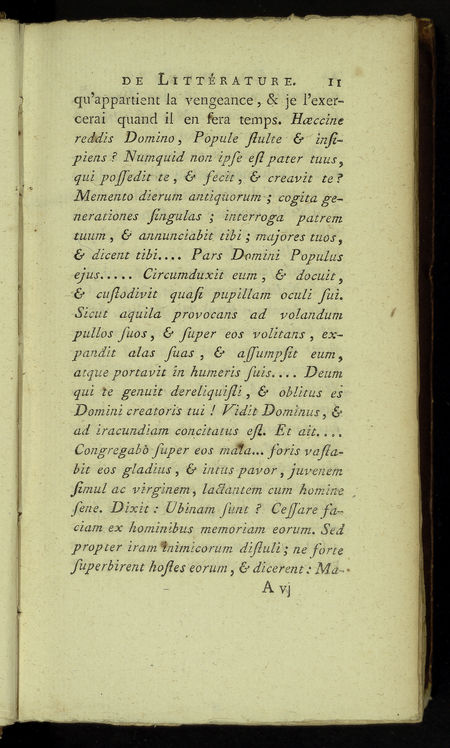 DE LITTÉRATURE. 11
qu'appartient la vengeance, & je l'exer-
cerai quand il en ſera temps. Hæccine
reddis Domino, Popule ſtulte & inſi-
piens? Numquid non ipſe eſt pater tuus,
qui poſſedit te, & fecit, & creavit te?
Memento dierum antiquorum; cogita ge-
nerationes ſingulas; interroga patrem
tuum, & annunciabit tibi; majores tuos,
& dicent tibi.... Pars Domini Populus
ejus..... Circumduxit eum, & docuit,
& cuſtodivit quaſi pupillam oculi ſui.
Sicut aquila provocans ad volandum
pullos ſuos, & ſuper eos volitans, ex-
pandit alas ſuas, & aſſumpſit eum,
atque portavit in humeris ſuis.... Deum
qui te genuit dereliquiſti, & oblitus es
Domini creatoris tui! Vidit Dominus, &
ad iracundiam concitatus eſt. Et ait....
Congregabò ſuper eos mala... foris vaſta-
bit eos gladius, & intùs pavor, juvenem
ſimul ac virginem, lactantem cum homine
ſene. Dixit: Ubinam ſunt? Ceſſare fa-
ciam ex hominibus memoriam eorum. Sed
propter iram inimicorum diſtuli; ne forte
ſuperbirent hoſtes eorum, & dicerent: Ma-
A vj